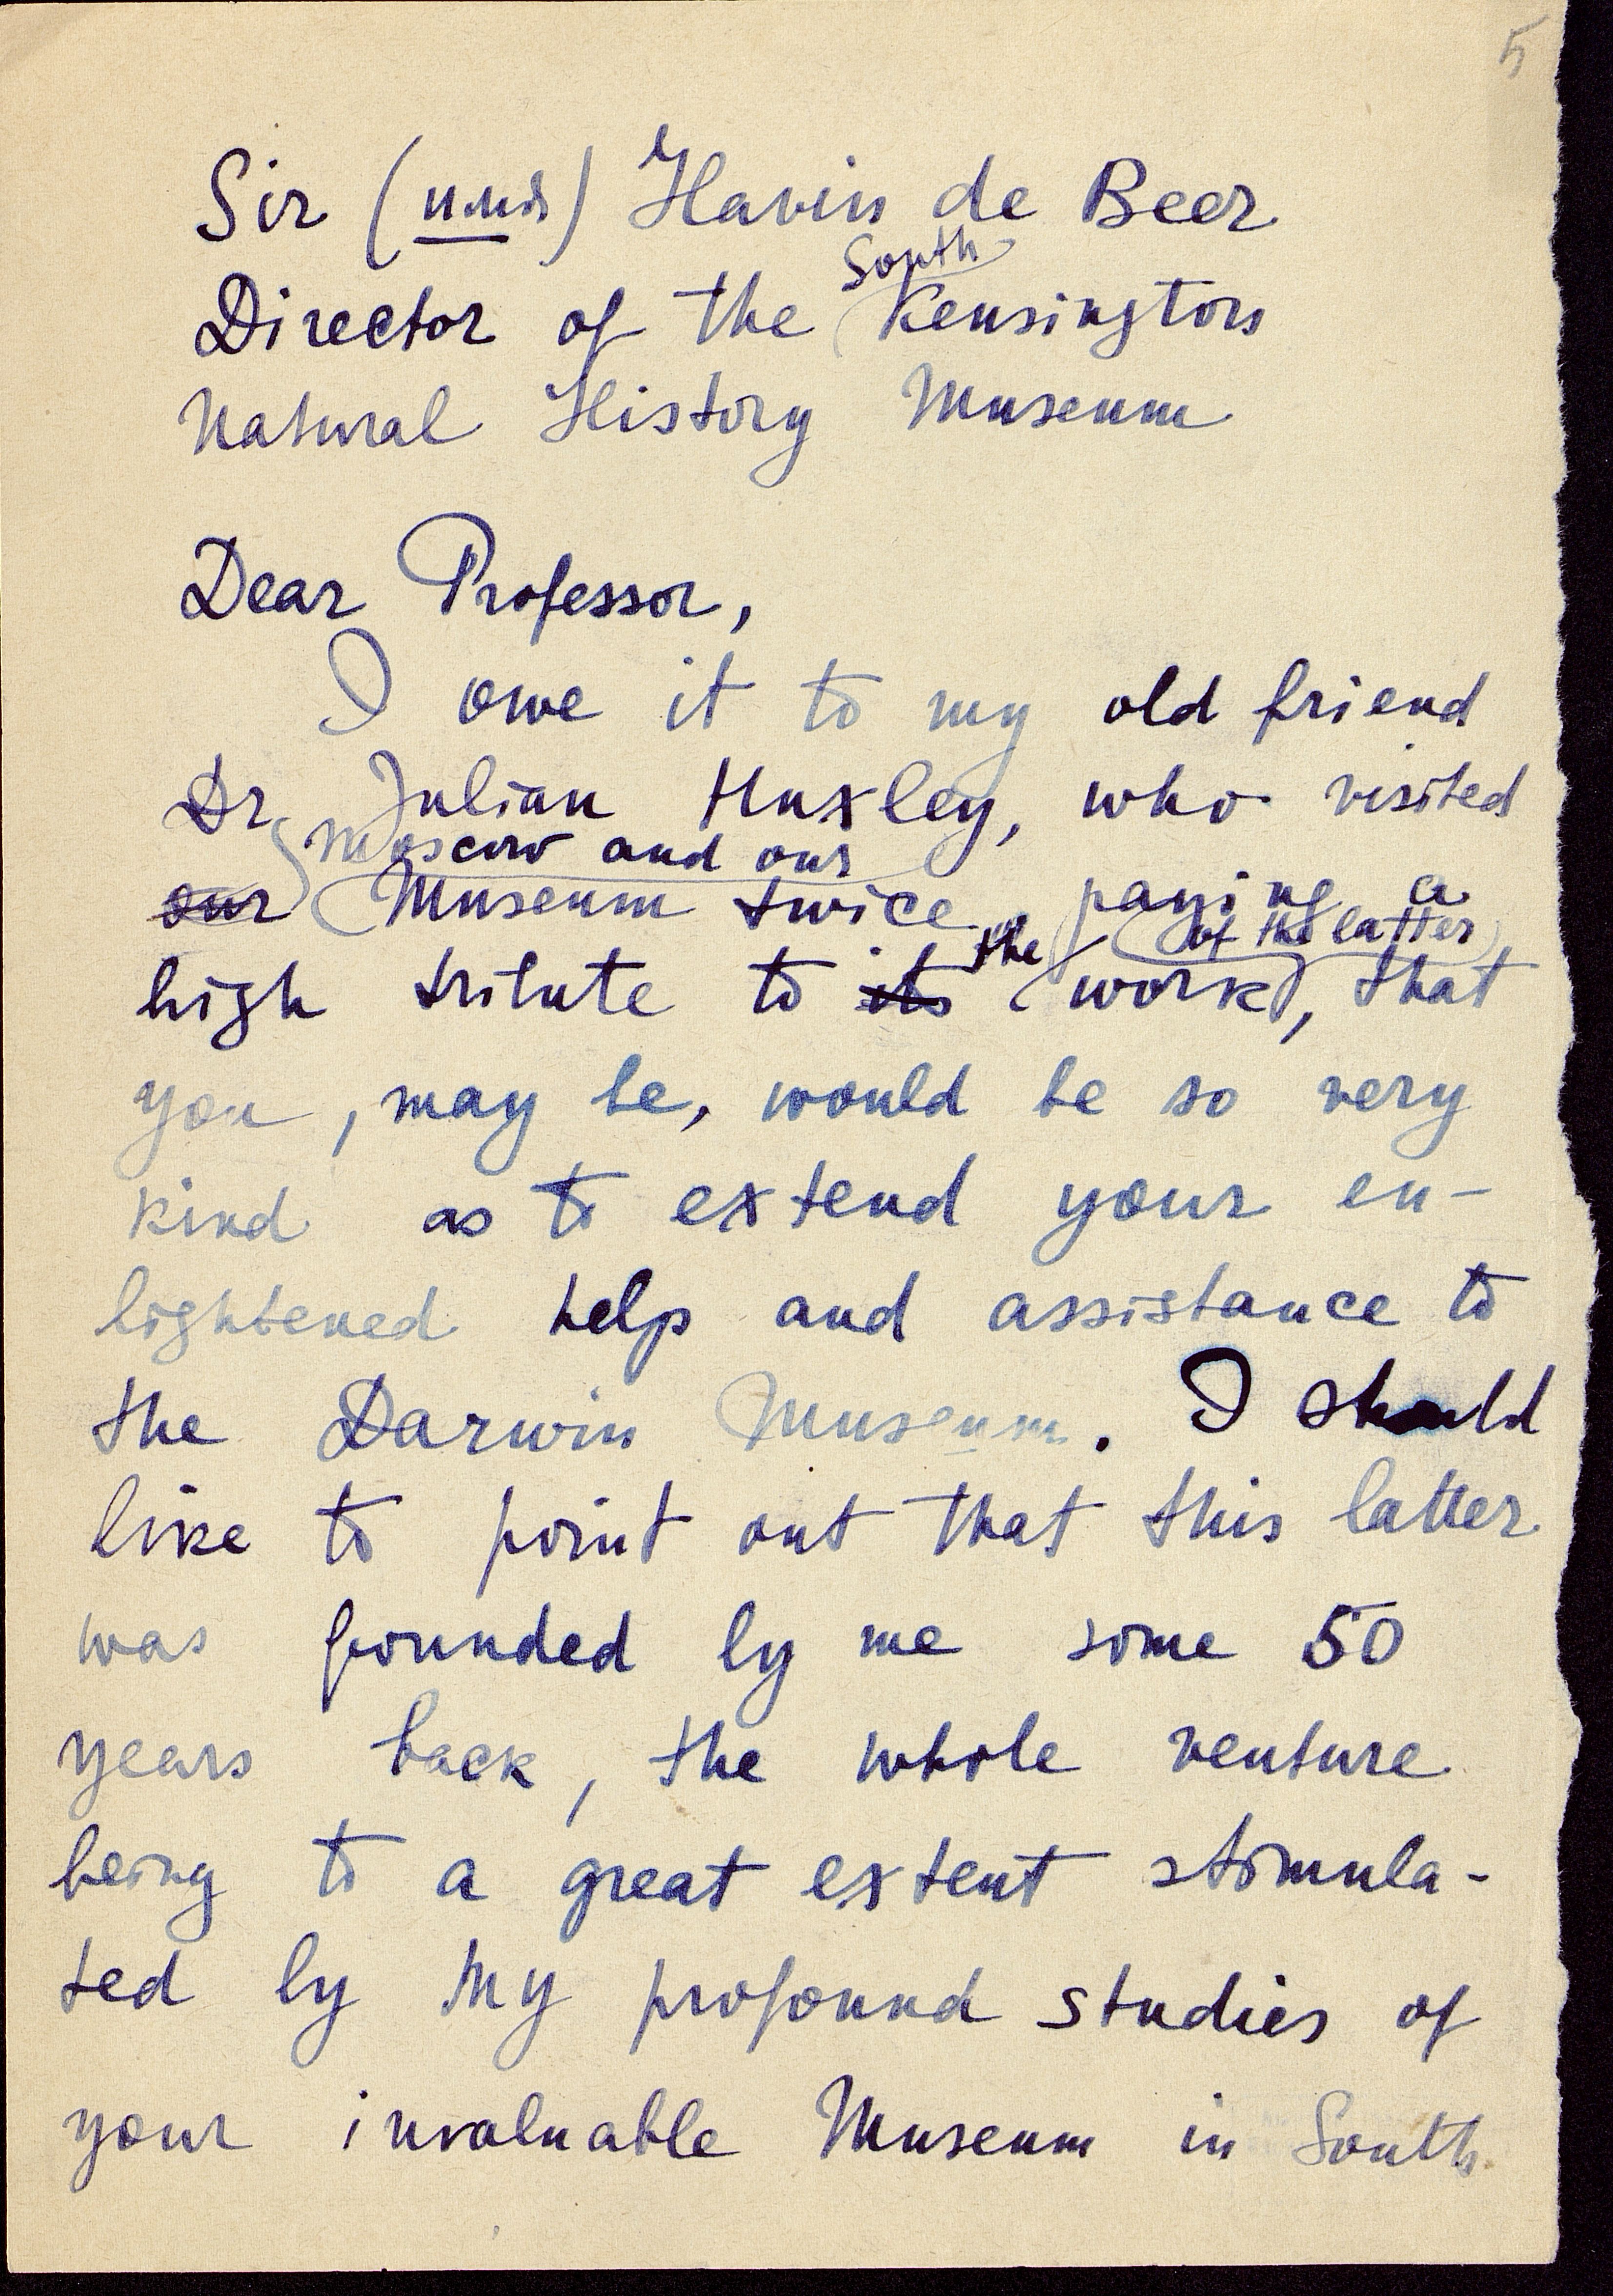 5
Sir (имя) Havin de Beer
Director of the South Kensington
Natural History Museum
Dear Professor,
I owe it to my old friend
Dr Julian Huxley, who visited
Moscow and our
our Museum twice paying a
the of the latter
high tribute to its work, that
you, may be, would be so very
kind as to extend your en-
lightened help and assistance to
the Darwin Museum. I should
like to point out that this latter
was founded by me some 50
years back, the whole venture
being to a great extent stimula-
ted by my profound studies of
your invaluable Museum in South